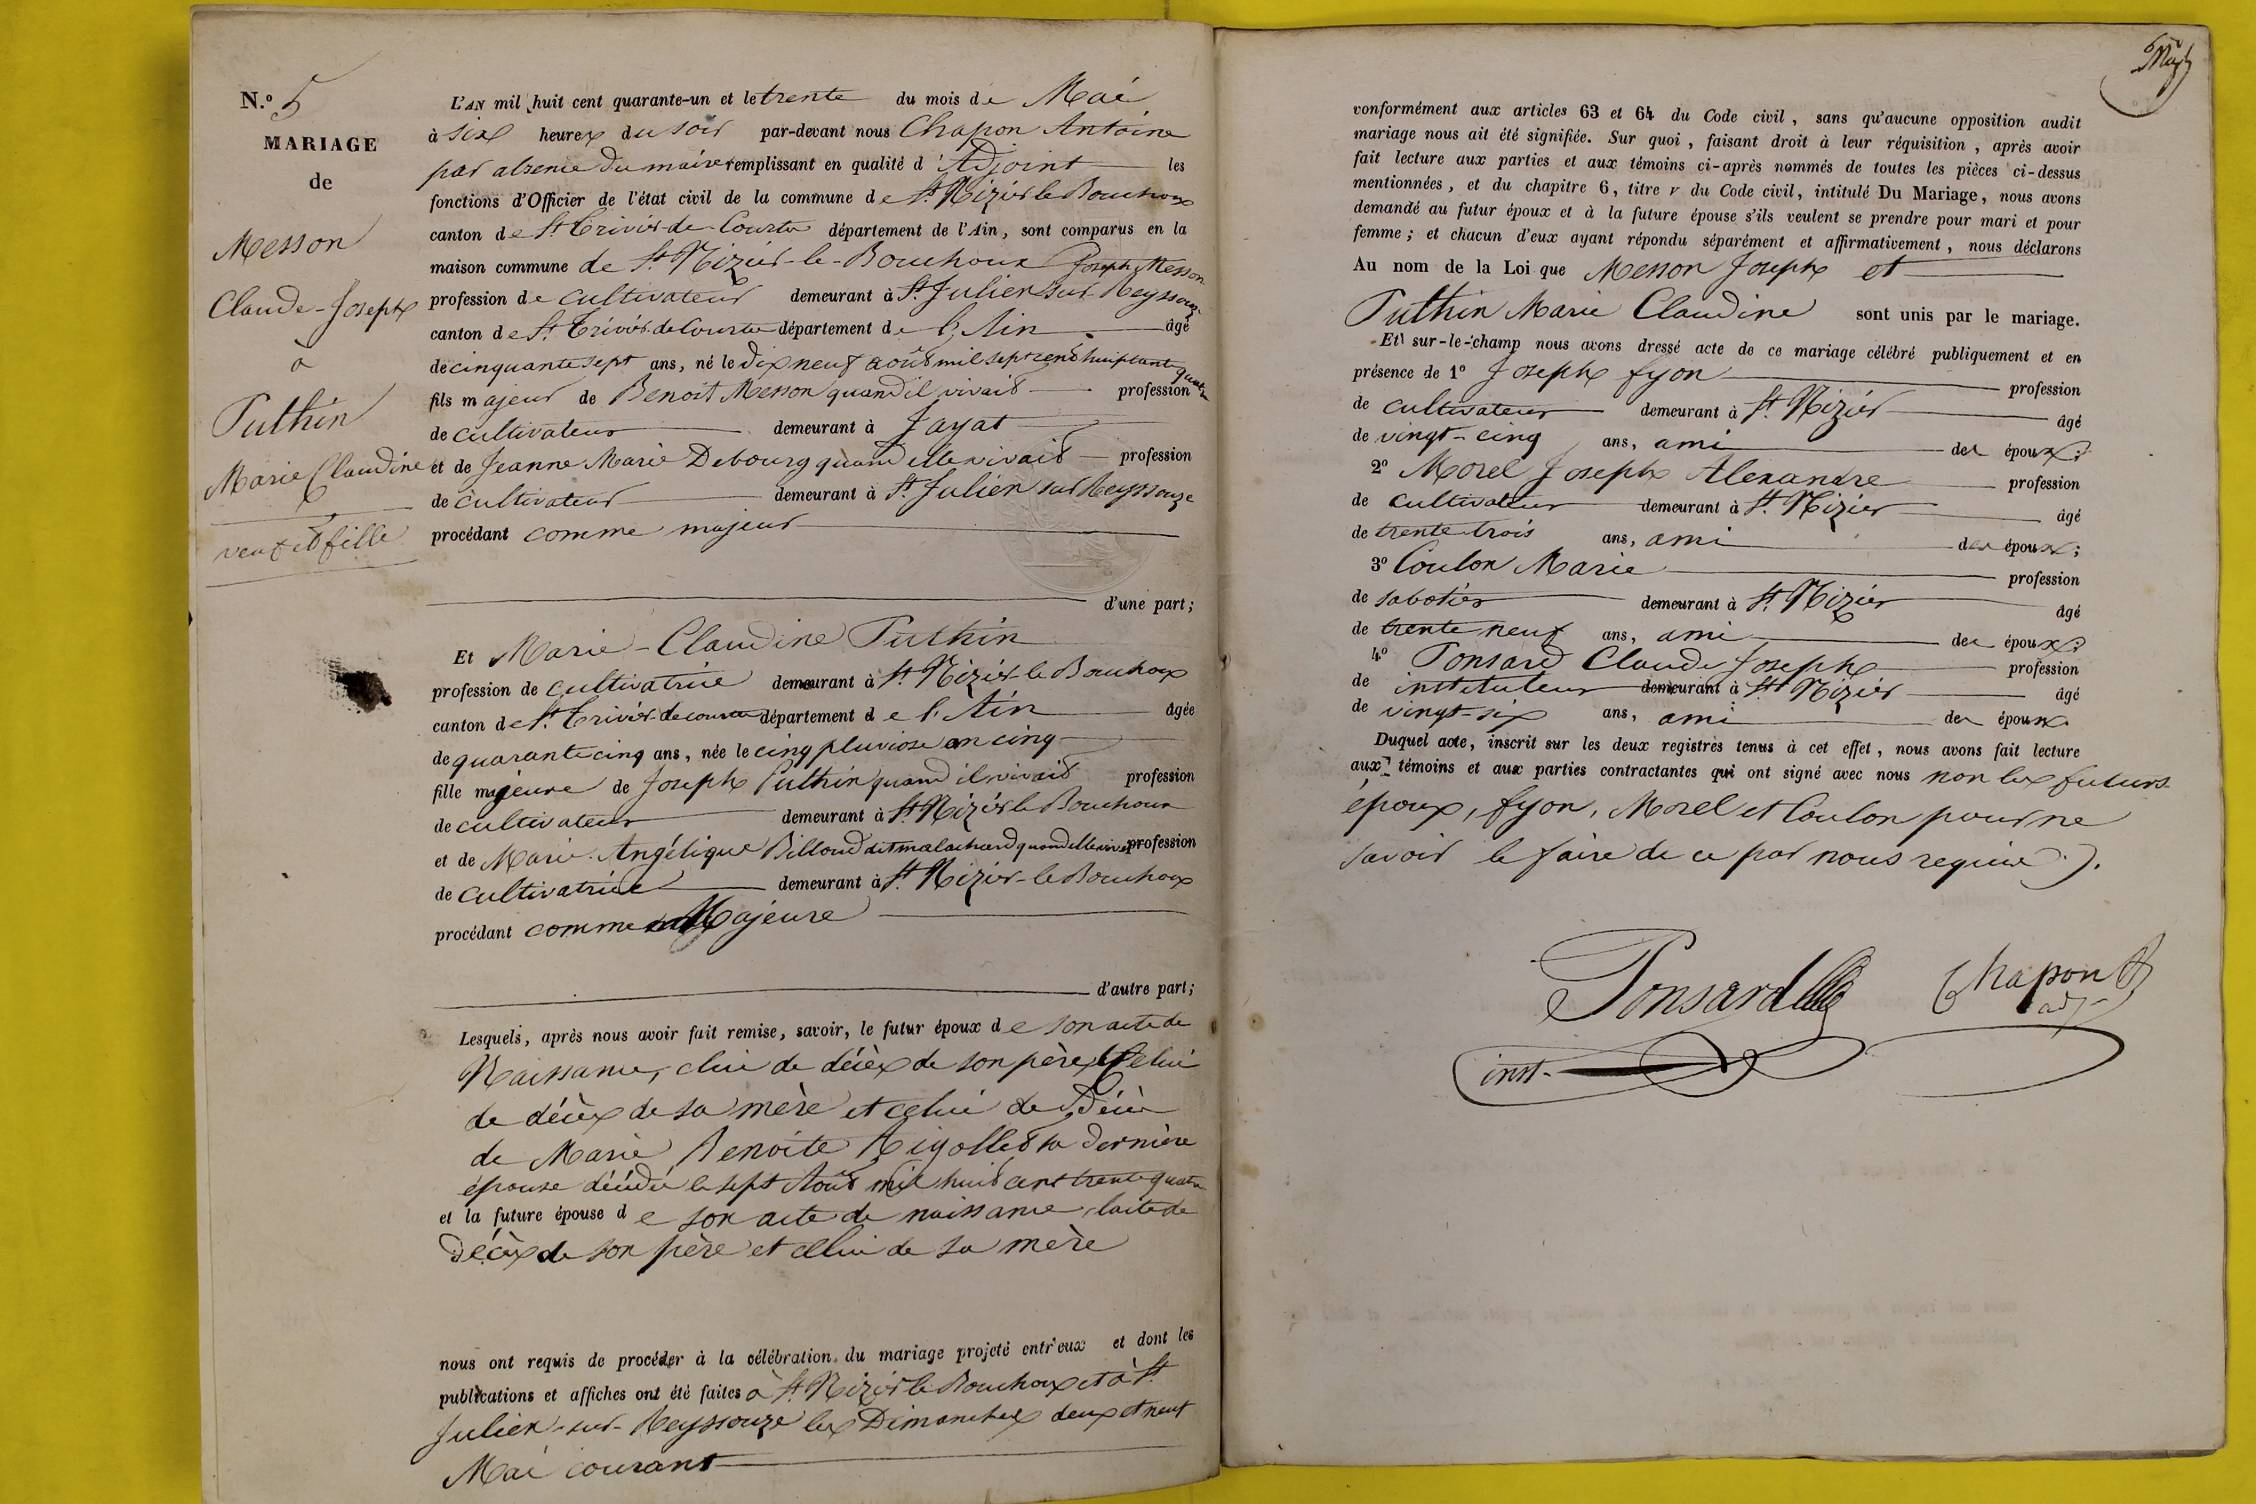 N.º 5
MARIAGE
de
Messon
Claude-Joseph
à
Puthin
Marie Claudine
veuf et fille
L'AN mil huit cent quarante-un et le trente du mois de Mai
à six heures du soir par-devant nous Chapon Antoine
par absence du maire remplissant en qualité d'Adjoint les
fonctions d'Officier de l'état civil de la commune de St. Nizier le Bouchoux
canton de St. Trivier-de-Courtes département de l'Ain, sont comparus en la
maison commune de St. Nizier-le-Bouchoux Joseph Messon
profession de cultivateur demeurant à St. Julien sur Reyssouze
canton de St. Trivier de Courtes département de l'Ain âgé
de cinquante sept ans, né le dix neuf août mil sept cent huiptante quatre
fils majeur de Benoit Messon quand il vivait profession
de cultivateur demeurant à Jayat
et de Jeanne Marie Debourg quand elle vivait profession
de cultivateur demeurant à St. Julien sur Reyssouze
procédant comme majeur
d'une part;
Et Marie-Claudine Puthin
profession de cultivatrice demeurant à St. Nizier le Bouchoux
canton de St. Trivier-de courtes département de l'Ain âgée
de quarante cinq ans, née le cinq pluviose an cinq
fille majeure de Joseph Puthin quand il vivait profession
de cultivateur demeurant à St. Nizier le Bouchoux
et de Marie Angélique Billoud dit quand elle vivait profession
de cultivatrice demeurant à St. Nizier-le Bouchoux
procédant comme Majeure
d'autre part;
Lesquels, après nous avoir fait remise, savoir, le futur époux de son acte de
Naissance, celui de décès de son père, celui
de décès de sa mère et celui de Décès
de Marie Benoite Rigollet sa dernière
épouse décédée le sept Août mil huit cent trente quatre
et la future épouse de son acte de naissance, l'acte de
Décès de son père et celui de sa mère
nous ont requis de procéder à la célébration du mariage projeté entr'eux et dont les
publications et affiches ont été faites à St. Nizier le Bouchoux et à St.
Julien-sur-Reyssouze les Dimanches deux et neuf
Mai courant
conformément aux articles 63 et 64 du Code civil, sans qu'aucune opposition audit
mariage nous ait été signifiée. Sur quoi, faisant droit à leur réquisition, après avoir
fait lecture aux parties et aux témoins ci-après nommés de toutes les pièces ci-dessus
mentionnées, et du chapitre 6, titre v du Code civil, intitulé Du Mariage, nous avons
demandé au futur époux et à la future épouse s'ils veulent se prendre pour mari et pour
femme; et chacun d'eux ayant répondu séparément et affirmativement, nous déclarons
Au nom de la Loi que Messon Joseph et
Puthin Marie Claudine sont unis par le mariage.
Et sur-le-champ nous avons dressé acte de ce mariage célébré publiquement et en
présence de 1º Joseph fyon profession
de cultivateur demeurant à St. Nizier âgé
de vingt-cinq ans, ami des époux;
2º Morel Joseph Alexandre profession
de cultivateur demeurant à St. Nizier âgé
de trente trois ans, ami des époux;
3º Coulon Marie profession
de sabotier demeurant à St. Nizier âgé
de trente neuf ans, ami des époux;
4º Ponsard Claude Joseph profession
de instituteur demeurant à St. Nizier âgé
de vingt-six ans, ami des époux.
Duquel acte, inscrit sur les deux registres tenus à cet effet, nous avons fait lecture
aux témoins et aux parties contractantes qui ont signé avec nous non les futurs
époux, fyon, Morel et Coulon pour ne
savoir le faire de ce par nous requis.
Ponsard Chapon
adj
inst.